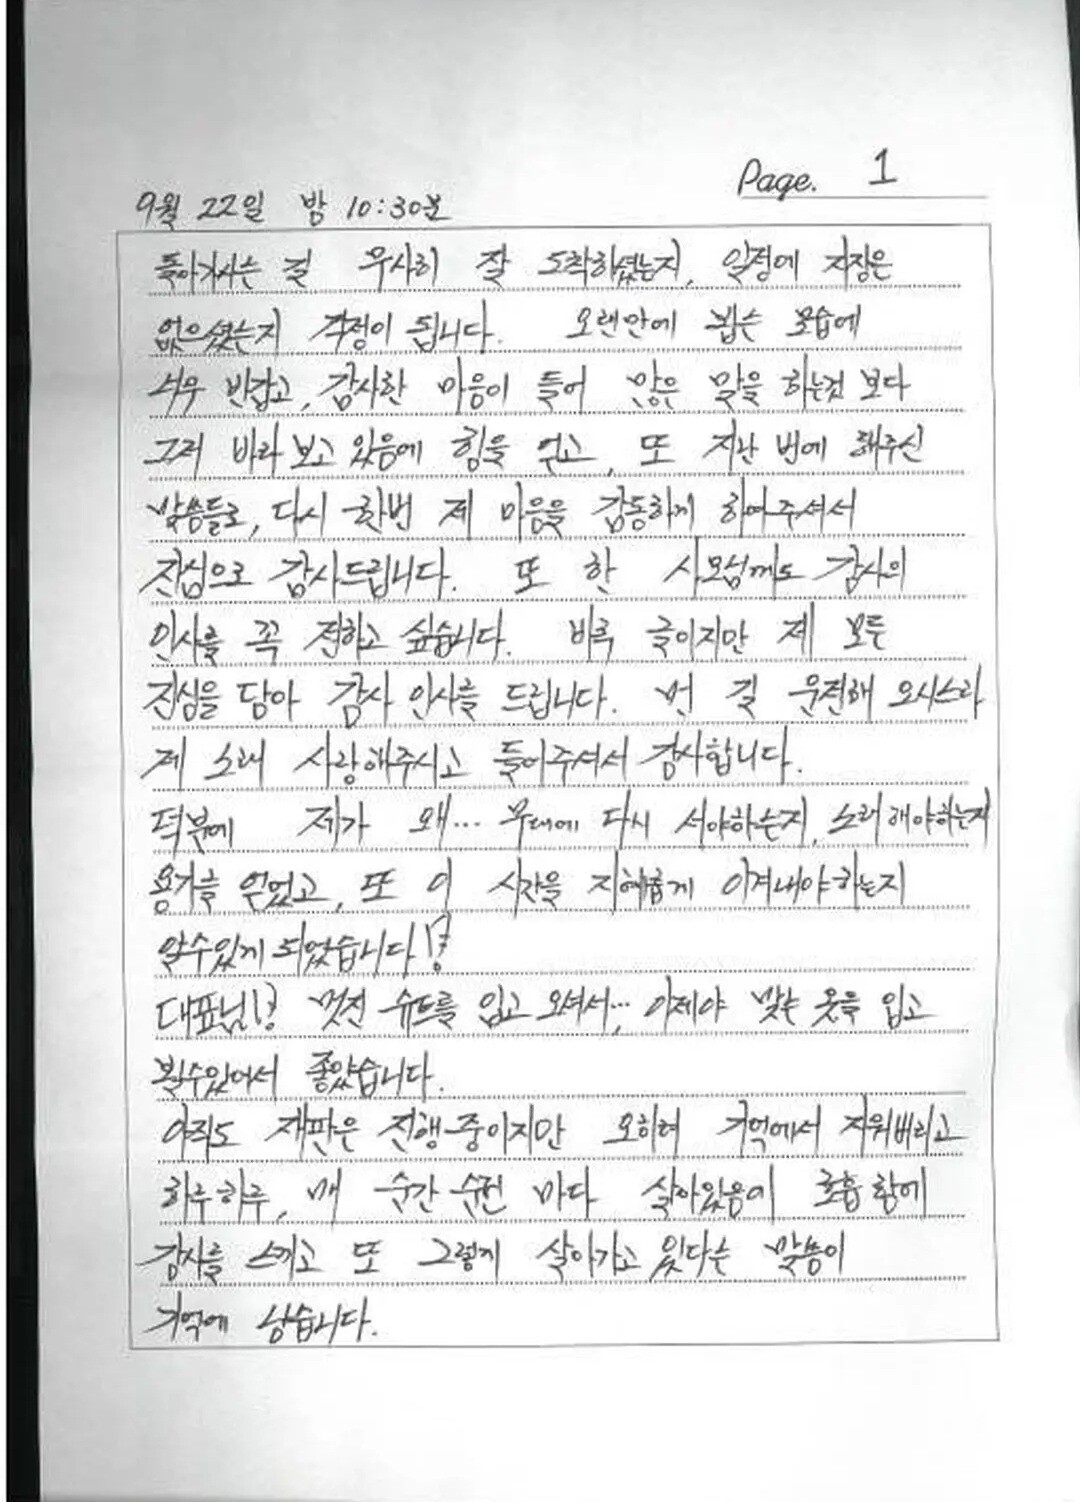 Page. 1
9월 22일 밤 10:30분
돌아가시는 길 무사히 잘 도착하셨는지, 일정에 지장은
없으셨는지 걱정이 됩니다. 오랜만에 뵙는 모습에
너무 반갑고, 감사한 마음이 들어 많은 말을 하는것 보다
그저 바라보고 있음에 힘을 얻고, 또 지난 번에 해주신
말씀들로, 다시 한번 제 마음을 감동하게 하여주셔서
진심으로 감사드립니다. 또 한 사모님께도 감사의
인사를 꼭 전하고 싶습니다. 비록 글이지만 제 모든
진심을 담아 감사 인사를 드립니다. 먼 길 운전해 오시느라
제 노래 사랑해주시고 들어주셔서 감사합니다.
덕분에 제가 왜... 무대에 다시 서야하는지, 노래해야하는지
용기를 얻었고, 또 이 시간을 지혜롭게 이겨내야하는지
알수있게 되었습니다!?
대표님!? 멋진 슈트를 입고 오셔서..., 이제야 맞는 옷을 입고
뵐수있어서 좋았습니다.
아직도 재판은 진행중이지만 오히려 기억에서 지워버리고
하루하루, 매 순간 순간 마다 살아있음에 호흡함에
감사를 느끼고 또 그렇게 살아가고 있다는 말씀이
기억에 남습니다.